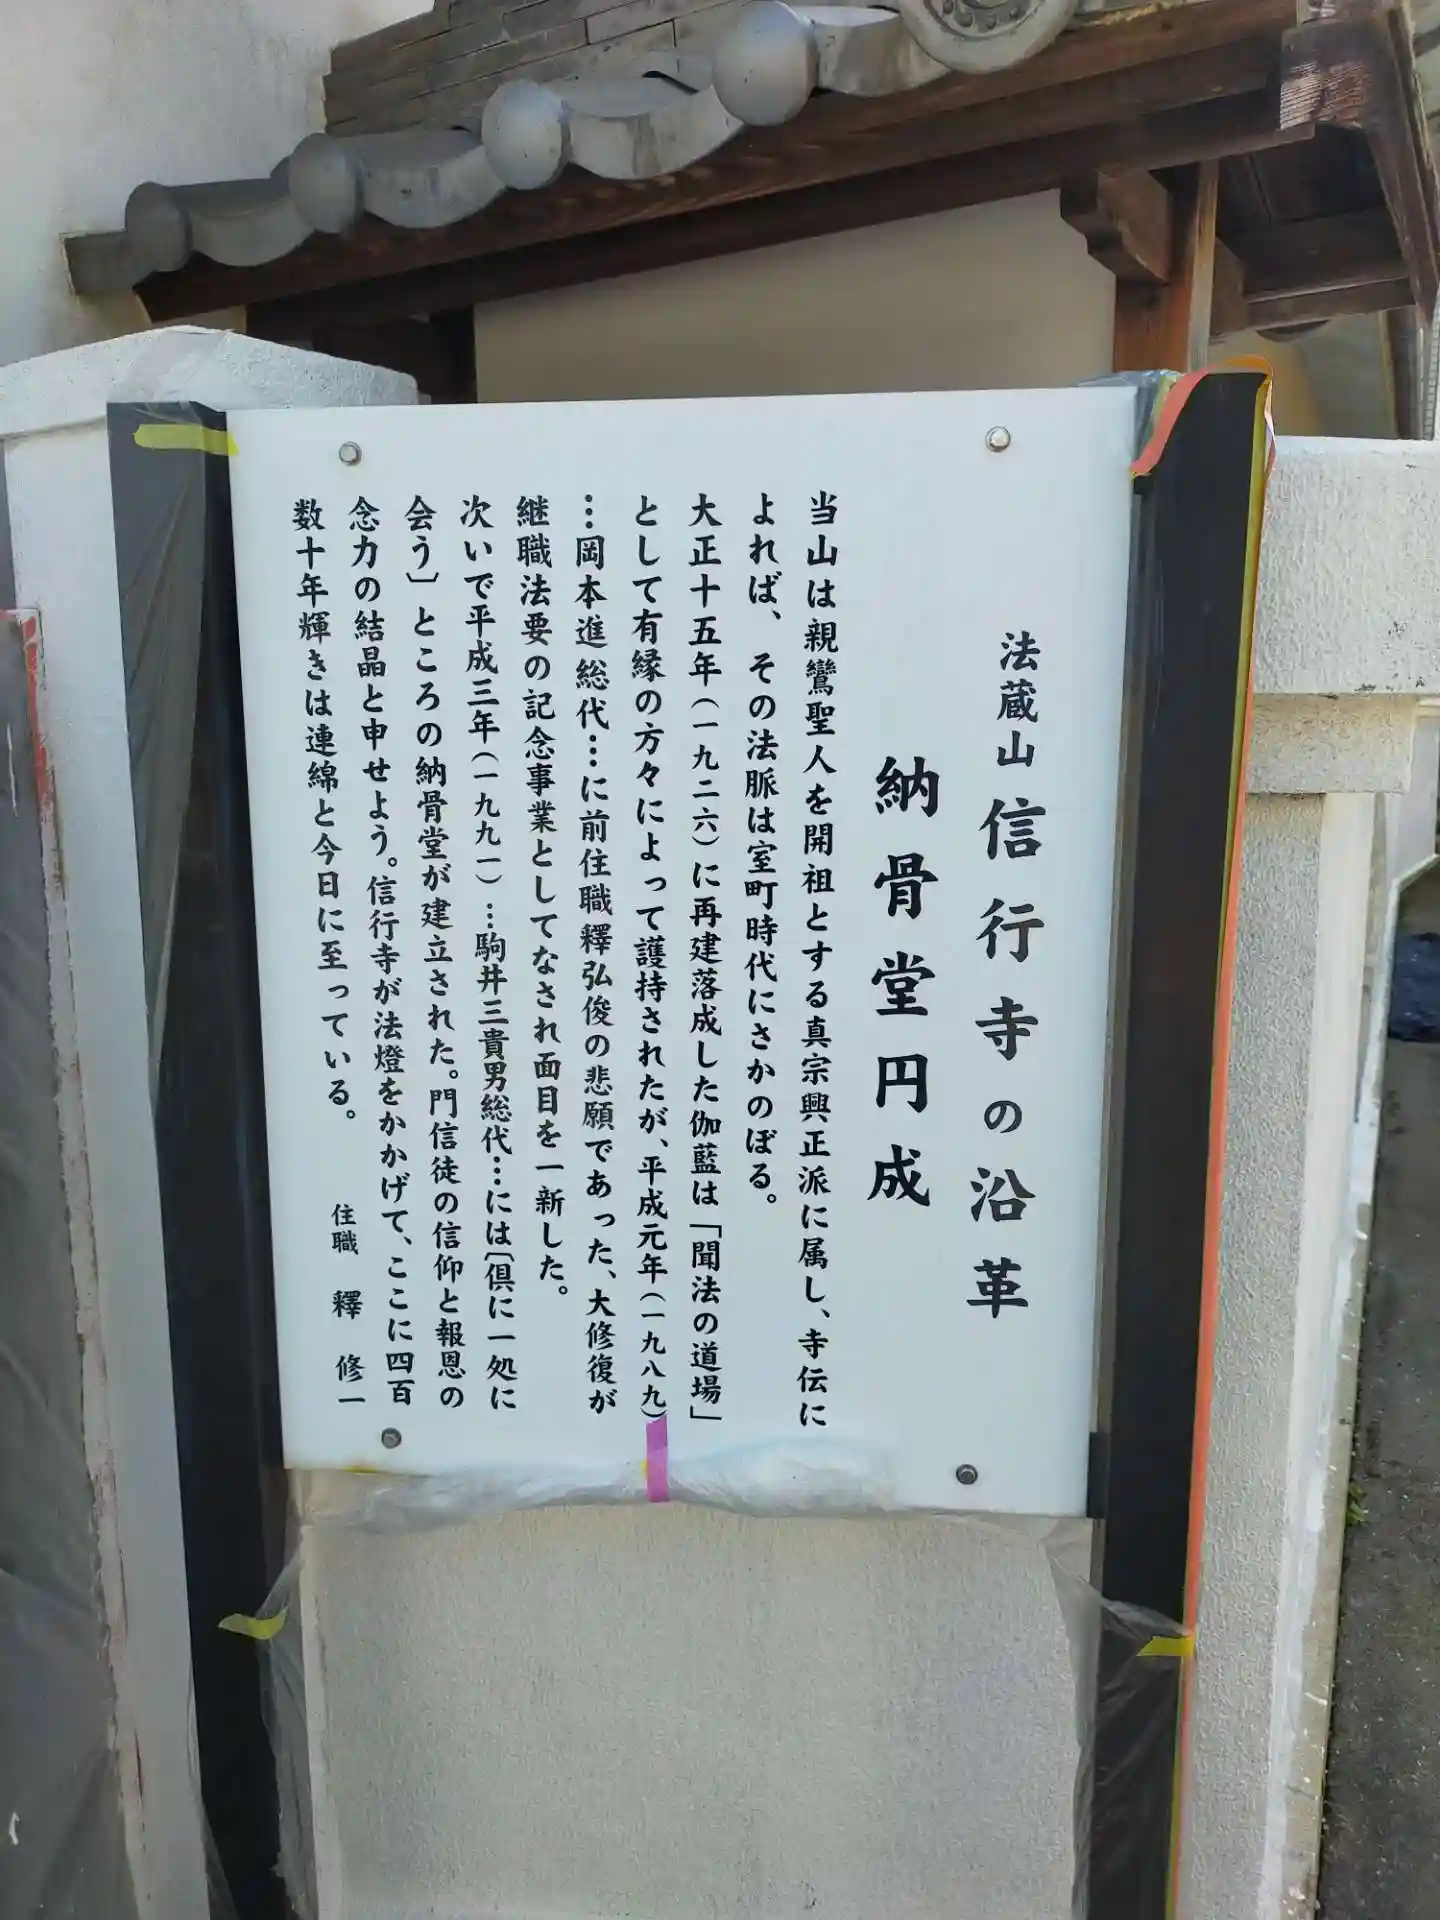 法蔵山信行寺の沿革
納骨堂円成
当山は親鸞聖人を開祖とする真宗興正派に属し、寺伝に
よれば、その法脈は室町時代にさかのぼる。
大正十五年(一九二六)に再建落成した伽藍は「聞法の道場」
として有縁の方々によって護持されたが、平成元年(一九八九)
…岡本進総代…に前住職釋弘俊の悲願であった、大修復が
継職法要の記念事業としてなされ面目を一新した。
次いで平成三年(一九九一)…駒井三貴男総代…には〔倶に一処に
会う〕ところの納骨堂が建立された。門信徒の信仰と報恩の
念力の結晶と申せよう。信行寺が法燈をかかげて、ここに四百
数十年輝きは連綿と今日に至っている。
住職 釋 修一